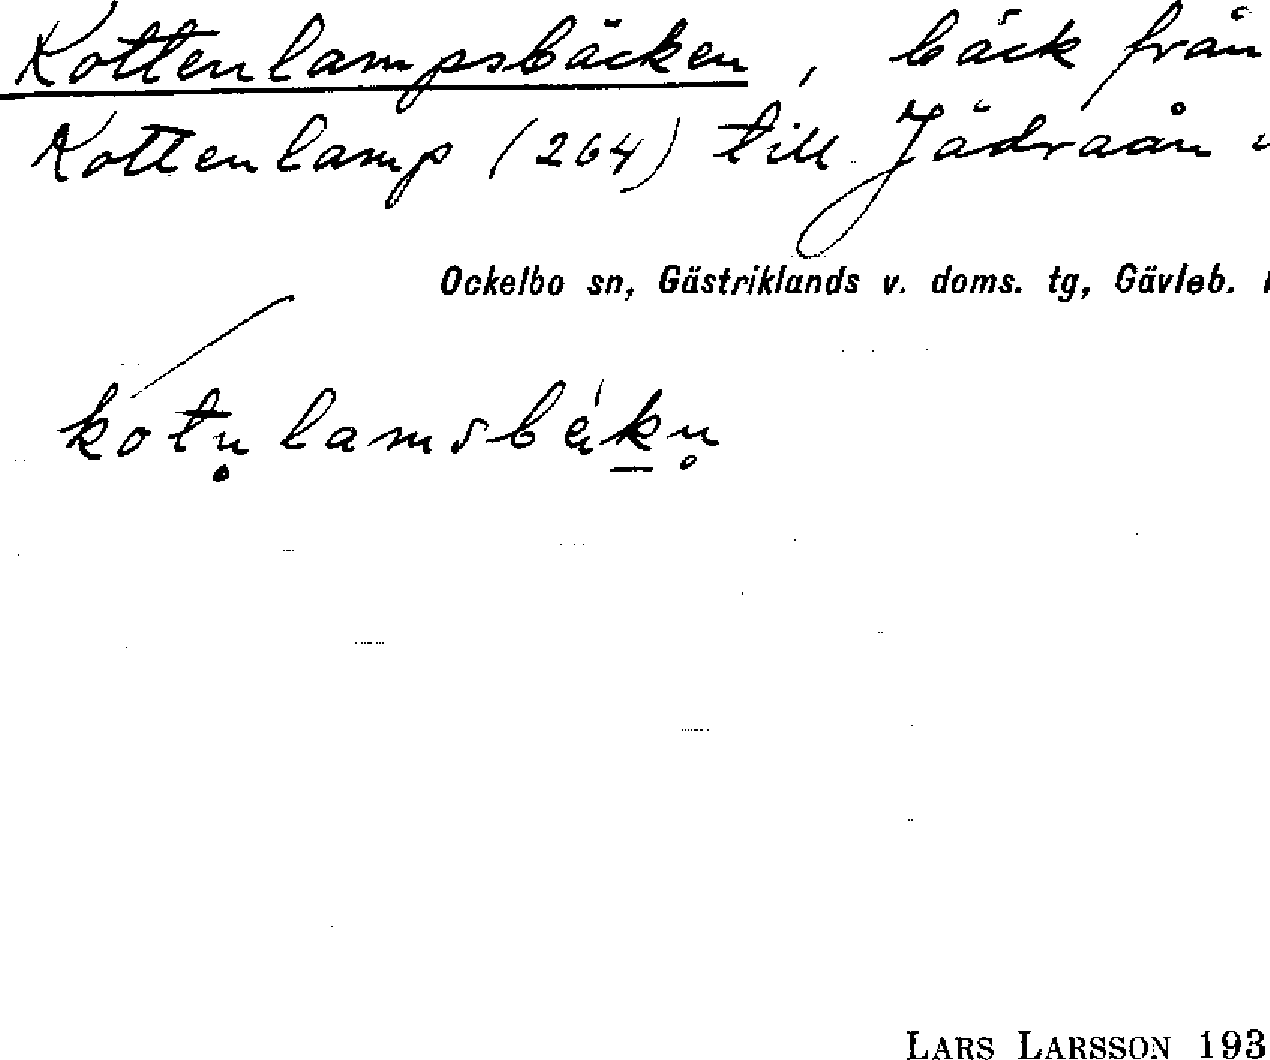 Kottenlampsbäcken, bäck från
Kottenlamp (264) till Jädraån
Ockelbo sn, Gästriklands v. doms. tg, Gävleb.
LARS LARSSON 193